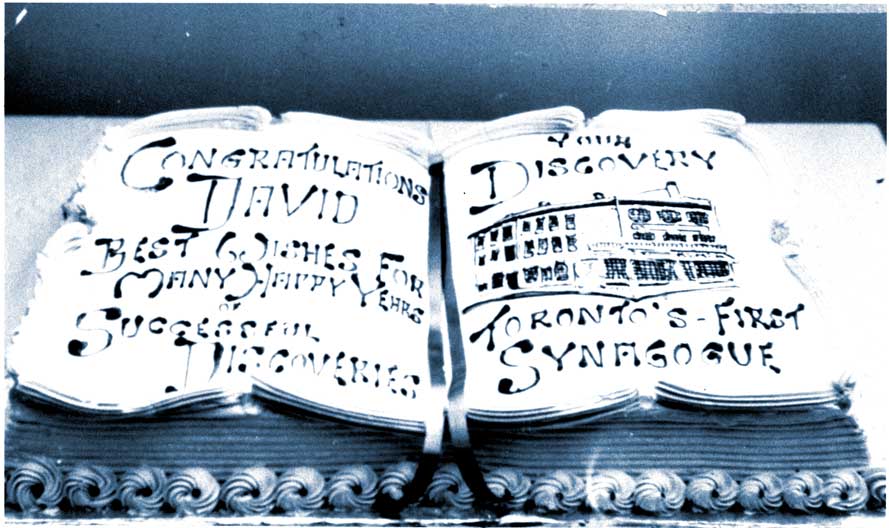 CONGRATULATIONS
DAVID
BEST WISHES FOR
MANY HAPPY YEARS
OF
SUCCESSFUL
DISCOVERIES
YOUR
DISCOVERY
TORONTO'S-FIRST
SYNAGOGUE